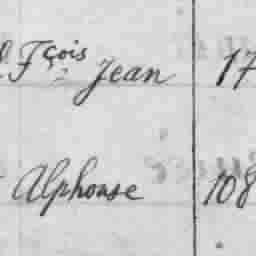 Fçois Jean 17
Alphonse 108